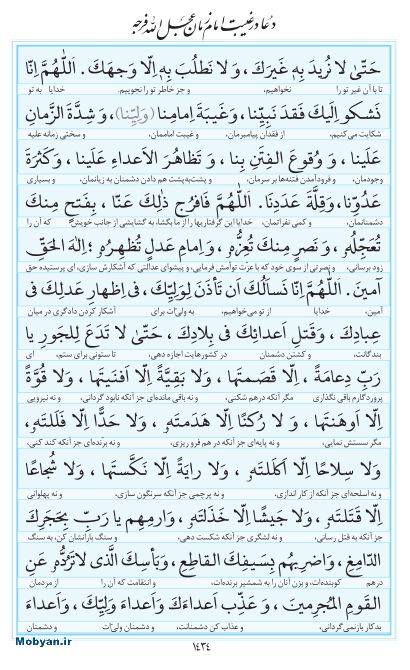 دعا در غیبت امام زمان عجل الله فرجه
حَتّىٰ لا نُريدَ بِهِ غَيرَكَ، وَ لا نَطلُبَ بِهِ اِلّا وَجهَكَ. اَللّٰهُمَّ اِنّا
تا با آن غیر تو را نخواهیم، و جز خاطر تو را نجوییم. خدایا به تو
نَشكو اِلَيكَ فَقدَ نَبِيِّنا، وَ غَيبَةَ اِمامِنا (وَلِيِّنا)، وَ شِدَّةَ الزَّمانِ
شکایت می‌کنیم، از فقدان پیامبرمان، و غیبت اماممان، و سختی زمانه علیه
عَلَينا، وَ وُقوعَ الفِتَنِ بِنا، وَ تَظاهُرَ الاَعداءِ عَلَينا، وَ كَثرَةَ
وجودمان، و فرودآمدن فتنه‌ها بر سرمان، و پشت‌به‌پشت هم دادن دشمنان به زیانمان، و بسیاری
عَدُوِّنا، وَ قِلَّةَ عَدَدِنا. اَللّٰهُمَّ فَافرُج ذٰلِكَ عَنّا، بِفَتحٍ مِنكَ
دشمنانمان، و کمی نفراتمان، خدایا این گرفتاریها را از ما بگشا، به گشایشی از جانب خویش که آن را
تُعَجِّلُهُ، وَ نَصرٍ مِنكَ تُعِزُّهُ، وَ اِمامِ عَدلٍ تُظهِرُهُ؛ اِلٰهَ الحَقِّ
زود برسانی، و نصرتی از سوی خود که با عزت توأمش فرمایی، و پیشوای عدالتی که آشکارش سازی، ای پرستیده حق
آمينَ. اَللّٰهُمَّ اِنّا نَسأَلُكَ اَن تَأذَنَ لِوَلِيِّكَ، فى اِظهارِ عَدلِكَ فى
آمین، خدایا از تو می‌خواهیم، به ولی‌ات برای آشکار کردن دادگری در میان
عِبادِكَ، وَ قَتلِ اَعدائِكَ فى بِلادِكَ، حَتّىٰ لا تَدَعَ لِلجَورِ يا
بندگانت، و کشتن دشمنان در کشورهایت اجازه دهی، تا ستونی برای ستم، ای
رَبِّ دِعامَةً، اِلّا قَصَمتَها، وَلا بَقِيَّةً اِلّا اَفنَيتَها، وَلا قُوَّةً
پروردگارم باقی نگذاری مگر آنکه درهم شکنی، و نه باقی مانده‌ای جز آنکه نابود گردانی، و نه نیرویی
اِلّا اَوهَنتَها، وَ لا رُكنًا اِلّا هَدَمتَهُ، وَ لا حَدًّا اِلّا فَلَلتَهُ،
مگر سستش نمایی، و نه پایه‌ای جز آنکه در هم فرو ریزی، و نه برنده‌ای جز آنکه کند کنی،
وَلا سِلاحًا اِلّا اَكلَلتَهُ، وَلا رايَةً اِلّا نَكَّستَها، وَلا شُجاعًا
و نه اسلحه‌ای جز آنکه از کار اندازی، و نه پرچمی جز آنکه سرنگون سازی، و نه پهلوانی
اِلّا قَتَلتَهُ، وَلا جَيشًا اِلّا خَذَلتَهُ، وَارمِهِم يا رَبِّ بِحَجَرِكَ
جز آنکه به قتل رسانی، و نه لشگری جز آنکه شکست دهی، و سنگ بارانشان کن، به سنگ
الدّامِغِ، وَاضرِبهُم بِسَيفِكَ القاطِعِ، وَبَأسِكَ الَّذى لاتَرُدُّهُ عَنِ
درهم کوبنده‌ات، و بزن آنان را به شمشیر برنده‌ات، و انتقامت که آن را از مردمان
القَومِ المُجرِمينَ، وَ عَذِّب اَعداءَكَ وَ اَعداءَ وَلِيِّكَ، وَ اَعداءَ
بدکار بازنمی‌گردانی، و عذاب کن دشمنانت، و دشمنان ولی‌ات و دشمنان
۱۴۳۴
Mobyan.ir